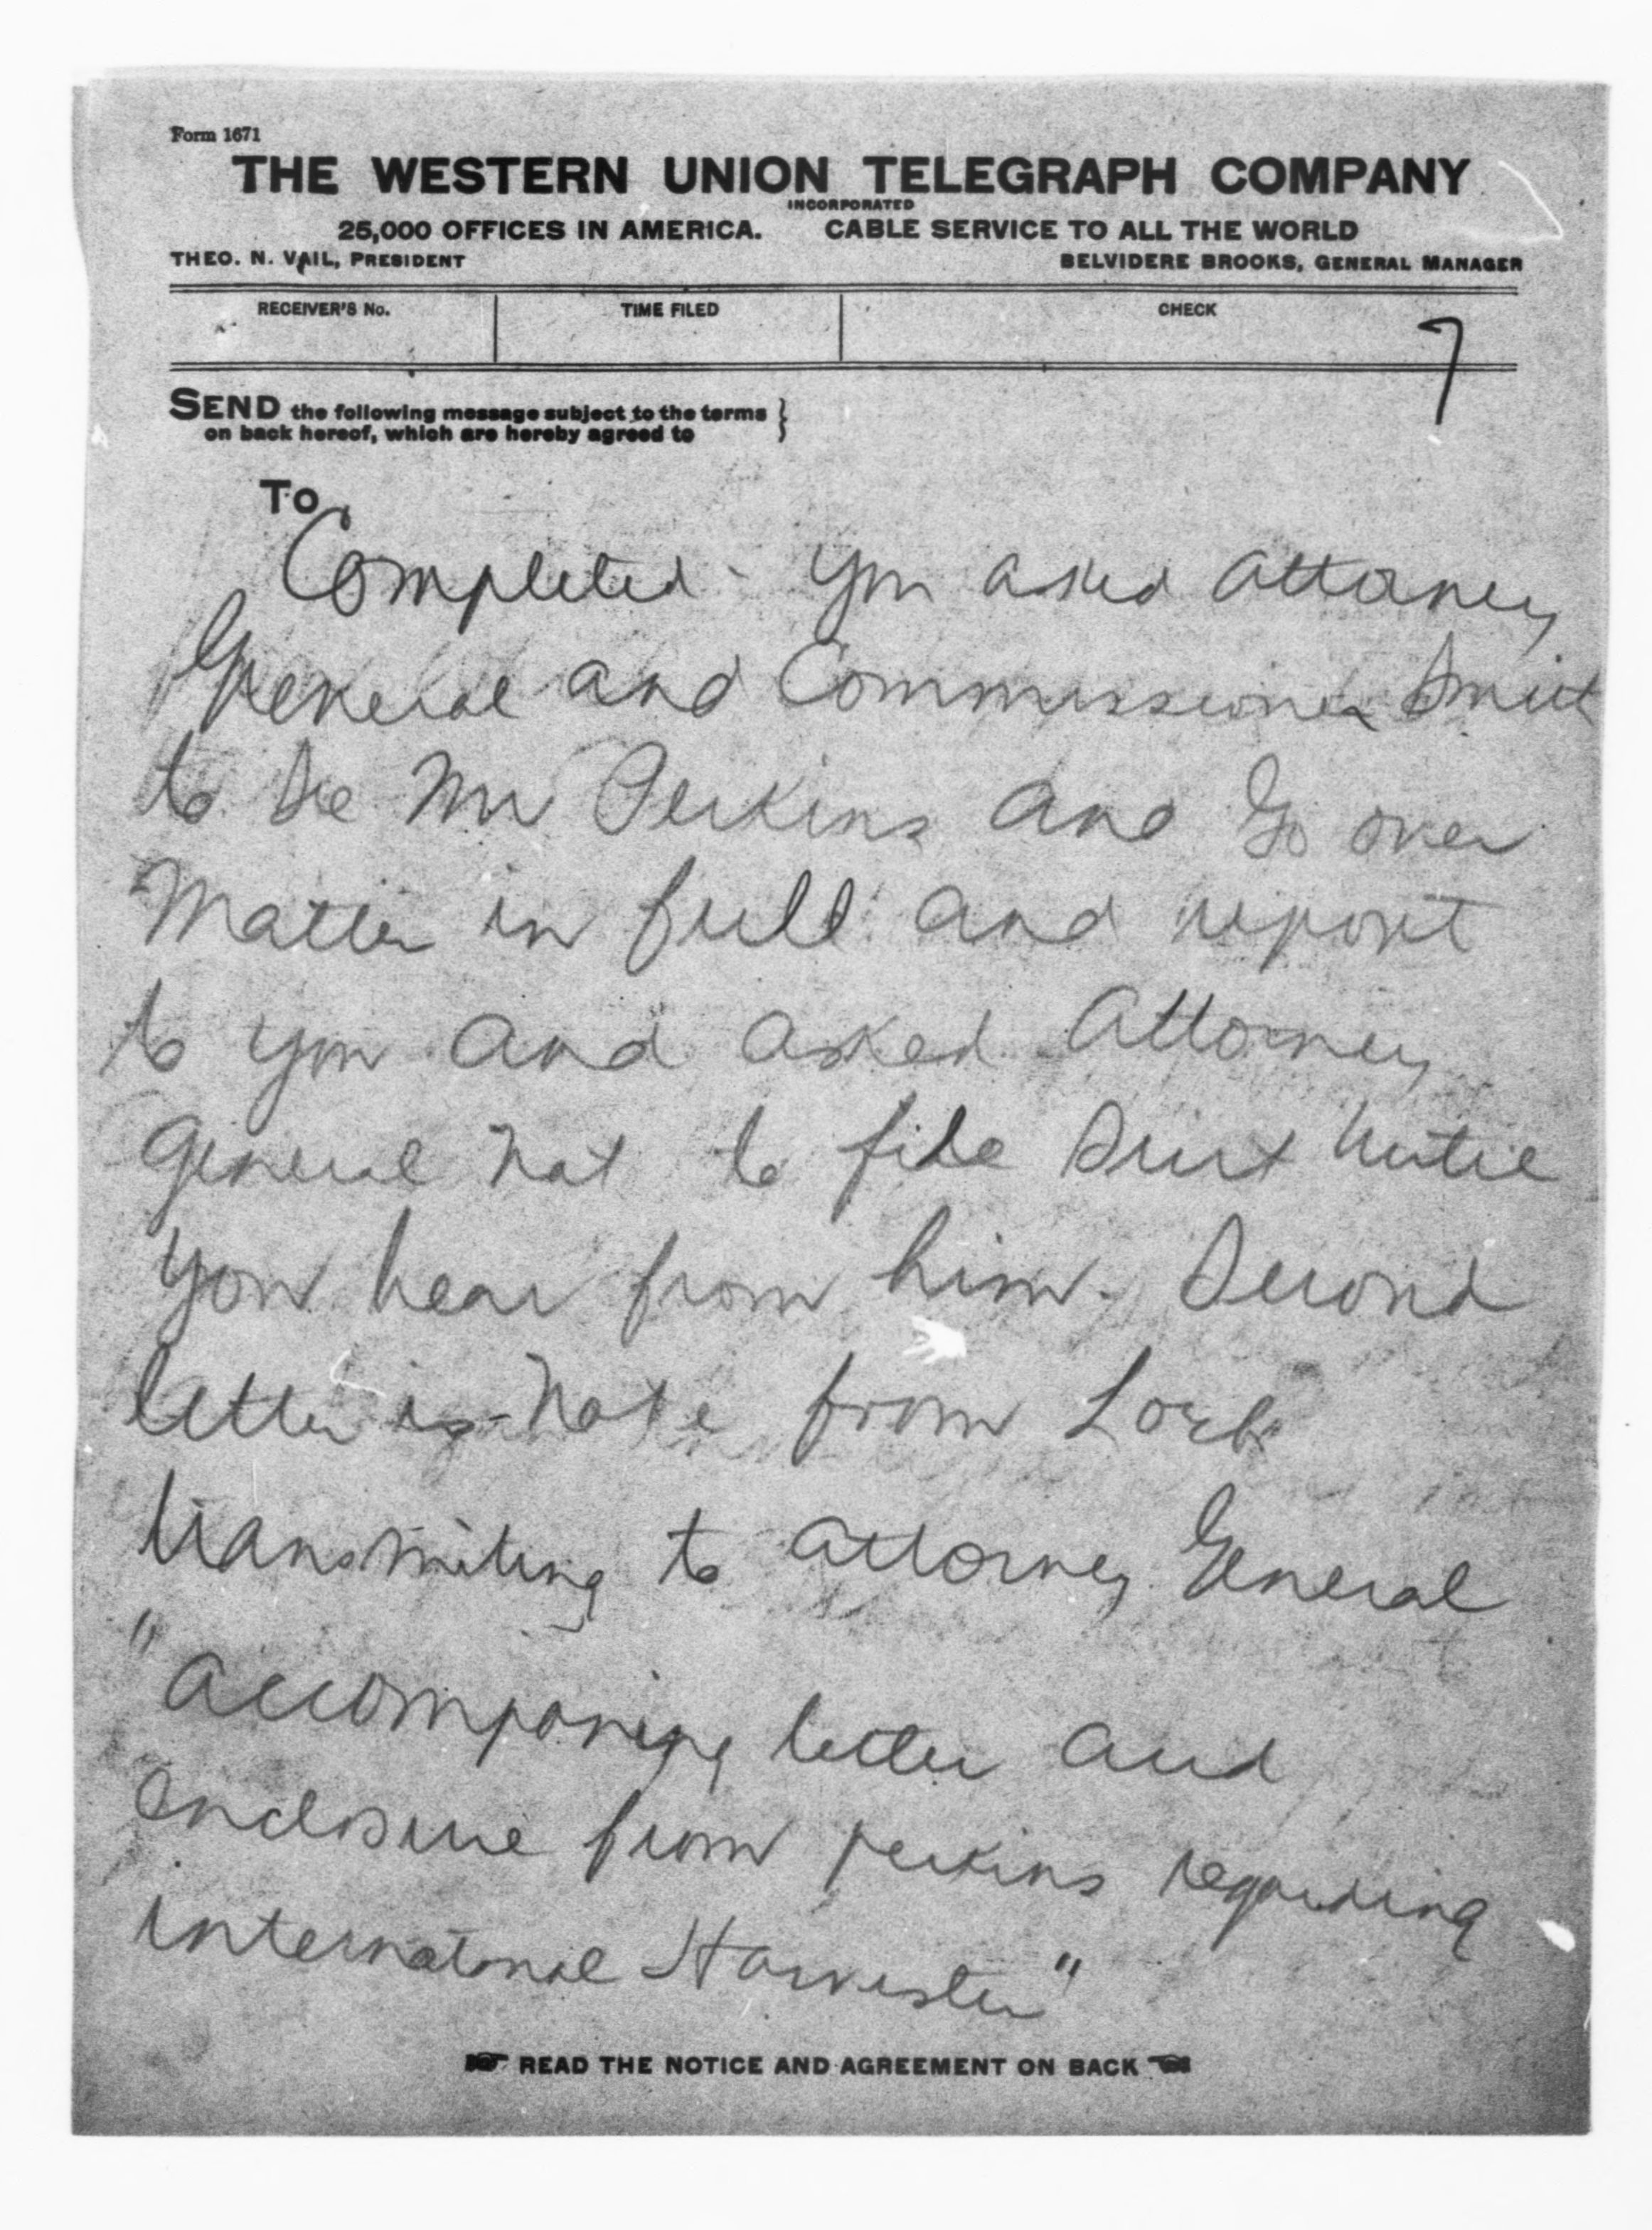 Form 1671
THE WESTERN UNION TELEGRAPH COMPANY
INCORPORATED
25,000 OFFICES IN AMERICA. CABLE SERVICE TO ALL THE WORLD
THEO. N. VAIL, PRESIDENT BELVIDERE BROOKS, GENERAL MANAGER
RECEIVER'S No. TIME FILED CHECK
7
SEND the following message subject to the terms
on back hereof, which are hereby agreed to
To
Completed - you asked attorney
General and Commissioner Smith
to see Mr Perkins and Go over
Matter in full and report
to you and asked Attorney
General not to file suit until
you hear from him. Second
letter is note from Loeb
transmiting to attorney General
"accompaning letter and
enclosure from perkins regarding
international Harvester"
READ THE NOTICE AND AGREEMENT ON BACK